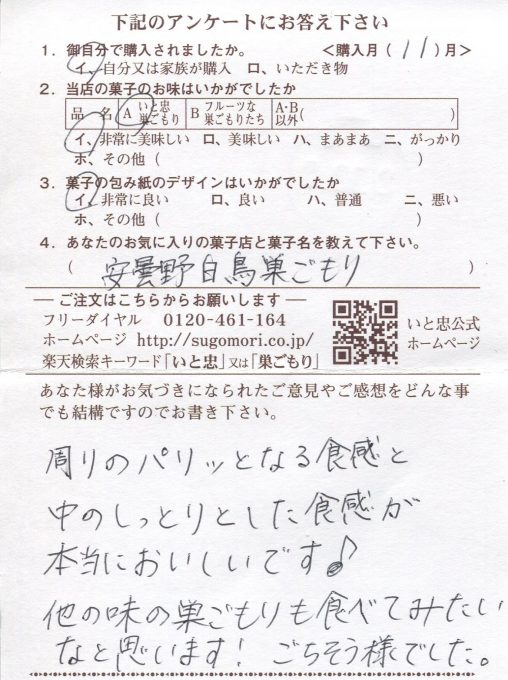 下記のアンケートにお答え下さい
1．御自分で購入されましたか。　＜購入月（11）月＞
イ、自分又は家族が購入　ロ、いただき物
2．当店の菓子のお味はいかがでしたか
品　名　A いと忠巣ごもり　B フルーツな巣ごもりたち　A・B以外（　　　）
イ、非常に美味しい　ロ、美味しい　ハ、まあまあ　ニ、がっかり
ホ、その他（　　　）
3．菓子の包み紙のデザインはいかがでしたか
イ、非常に良い　ロ、良い　ハ、普通　ニ、悪い
ホ、その他（　　　）
4．あなたのお気に入りの菓子店と菓子名を教えて下さい。
（安曇野白鳥巣ごもり）
― ご注文はこちらからお願いします ―
フリーダイヤル　0120-461-164
ホームページ　http://sugomori.co.jp/
楽天検索キーワード「いと忠」又は「巣ごもり」
いと忠公式
ホームページ
あなた様がお気づきになられたご意見やご感想をどんな事
でも結構ですのでお書き下さい。
周りのパリッとなる食感と
中のしっとりとした食感が
本当においしいです♪
他の味の巣ごもりも食べてみたい
なと思います！ごちそう様でした。